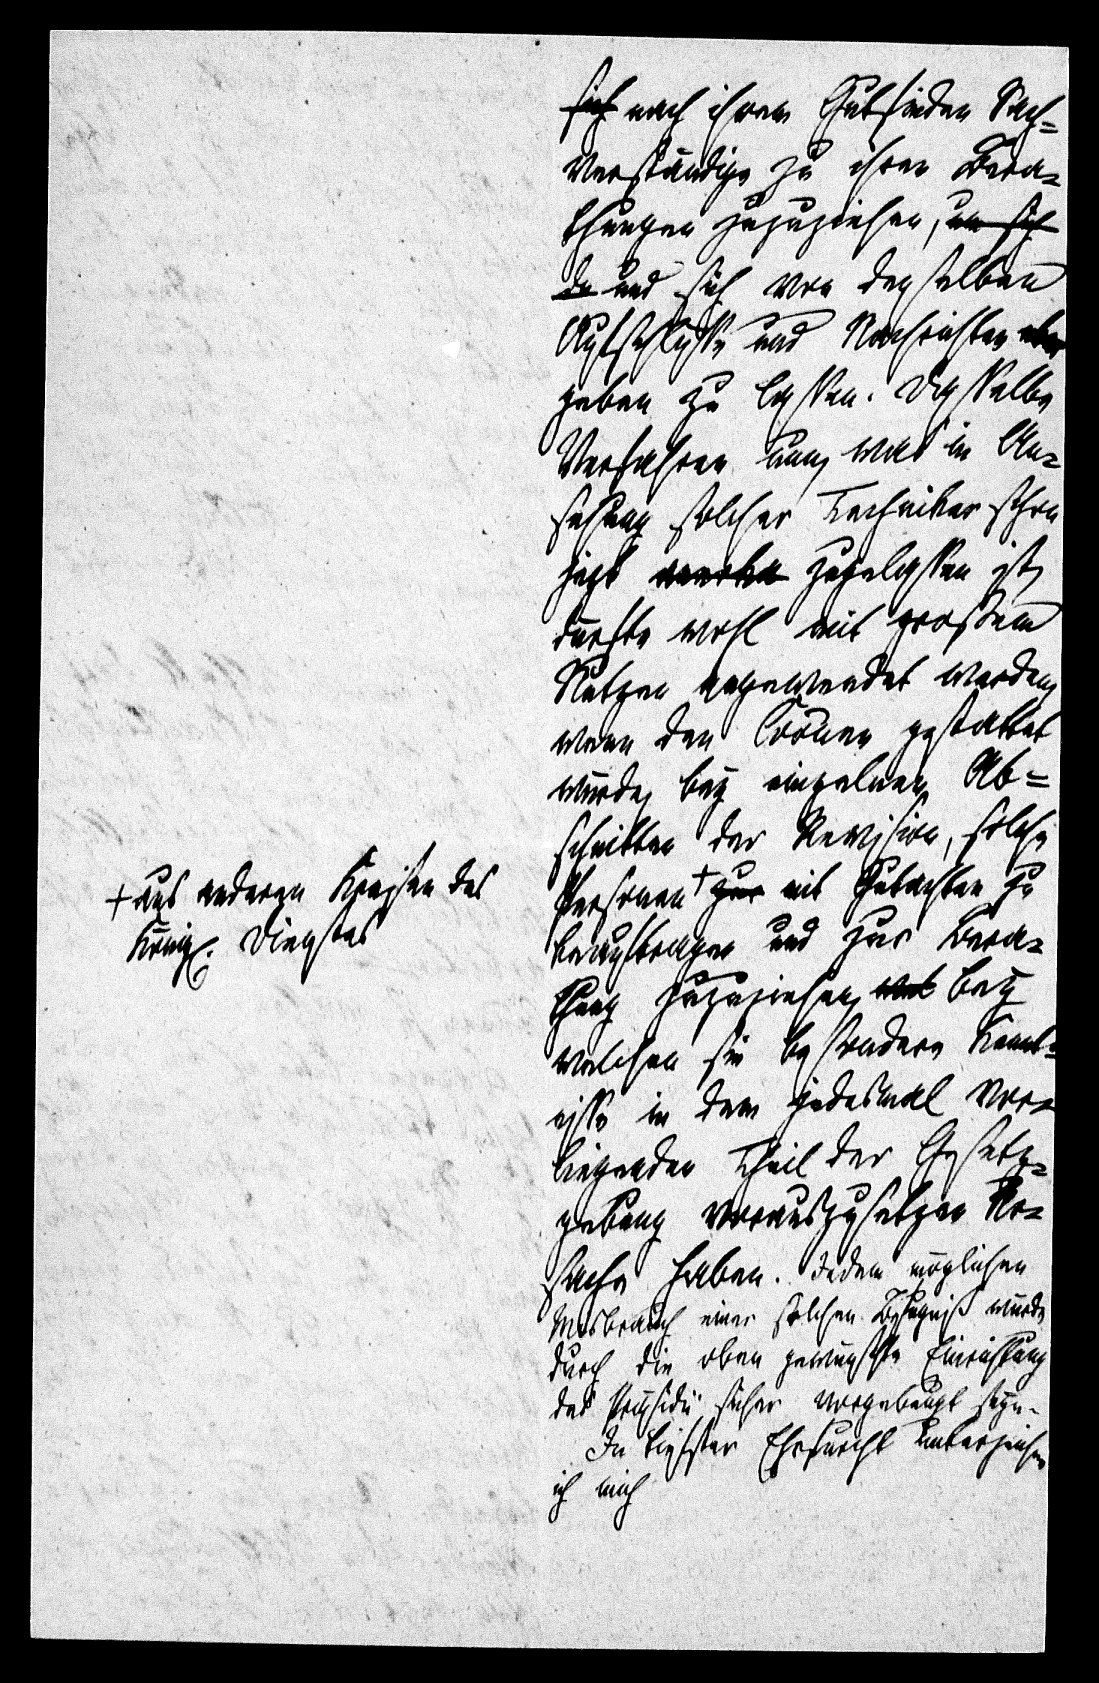 sich nach ihrem Gutfinden Sach-
verständige zu ihren Bera-
thungen zuzuziehen, um sich
de und sich von denselben
Aufschlüsse und Nachrichten
geben zu lassen. Dasselbe
Verfahren nun, was in An-
sehung solcher Techniker schon
jetzt zugelassen ist,
dürfte wohl mit großem
Nutzen angewendet werden,
wenn den Commen gestattet
würde, bey einzelnen Ab-
schnitten der Revision, solche
Personen + zur mit Gutachten zu
beauftragen und zur Bera-
thung zuzuziehen, bey
welchen sie besondere Kennt-
nisse in dem jedesmal vor-
liegenden Theil der Gesetz-
gebung vorauszusetzen Ur-
sache haben. Jedem möglichen
Misbrauch einer solchen Befugniß würde
durch die oben gewünschte Einrichtung
des Präsidii sicher vorgebeugt seyn.
In tiefster Ehrfurcht unterzeichne
ich mich
+ aus anderen Kreisen des
Königl. Dienstes